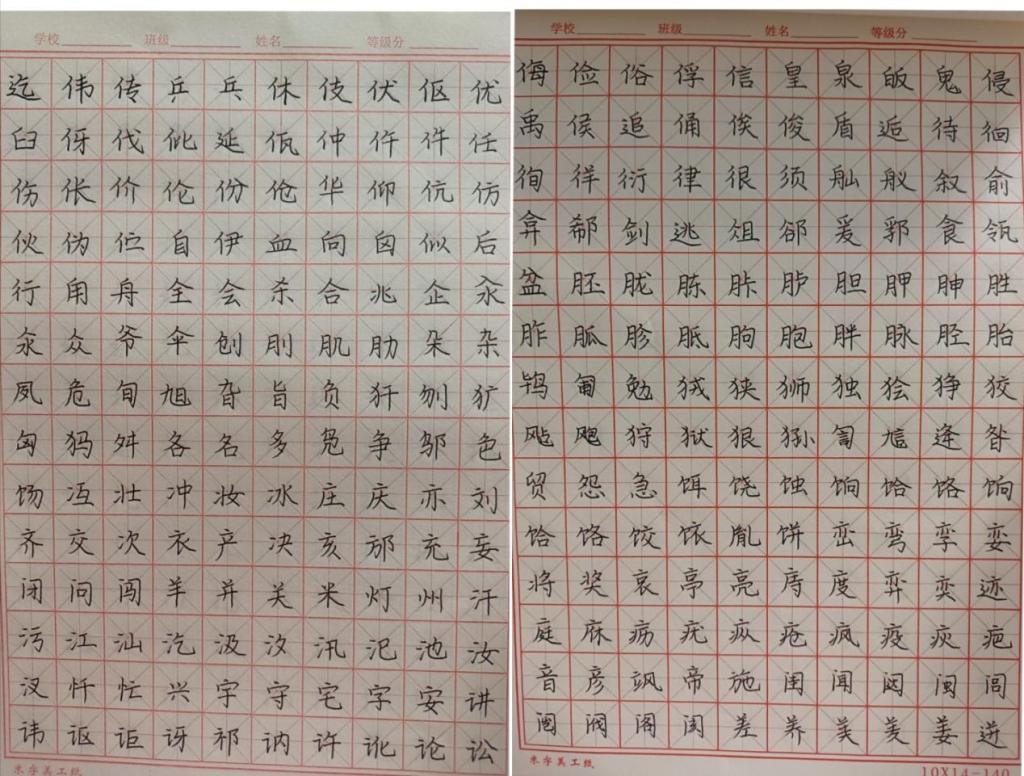 学校 班级 姓名 等级分
迄伟传乒乓休伎伏伛优
臼伢伐仳延佤仲仵件任
伤伥价伦份伧华仰伉仿
伙伪伫自伊血向囟似后
行甪舟全会杀合兆企汆
氽众爷伞刨刖肌肋朵杂
夙危旬旭旮旨负犴刎犷
匈犸舛各名多凫争邬色
饧冱壮冲妆冰庄庆亦刘
齐交次衣产决亥邡充妄
闭问闯羊并关米灯州汗
污江汕汔汲汐汛汜池汝
汊忏忙兴宇守宅字安讲
讳讴讵讶祁讷许讹论讼
米字美工纸
学校 班级 姓名 等级分
侮俭俗俘信皇泉皈鬼侵
禹侯追俑俟俊盾逅待徊
徇徉衍律很须舢舣叙俞
弇郗剑逃俎郤爰郛食瓴
盆胚胧胨胩胪胆胛胂胜
胙胍胗胝朐胞胖脉胫胎
鸨匍勉狨狭狮独狯狰狡
飐飑狩狱狠狲訇訄逄昝
贸怨急饵饶蚀饷饸饹饷
饸饹饺饻胤饼峦弯孪娈
将奖哀亭亮庤度弈奕迹
庭庥疬疣疭疮疯疫疢疤
音彦飒帝施闺闻闼闽闾
闿阀阁阂差养美羑姜迸
米字美工纸 10X14=140